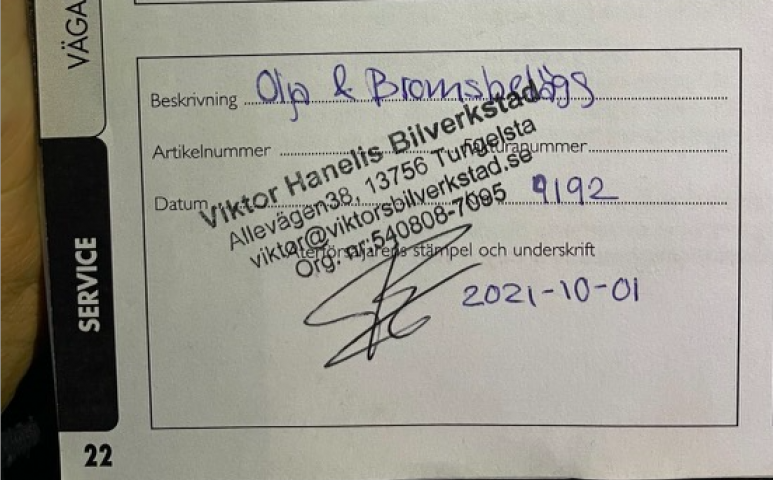 VÄGA
Beskrivning Olja & Bromsbelägg
Artikelnummer
Datum 9192
Viktor Hanelis Bilverkstad
Allevägen38, 13756 Tungelsta
viktor@viktorsbilverkstad.se
Org. nr:540808-7095
Återförsäljarens stämpel och underskrift
2021-10-01
SERVICE
22